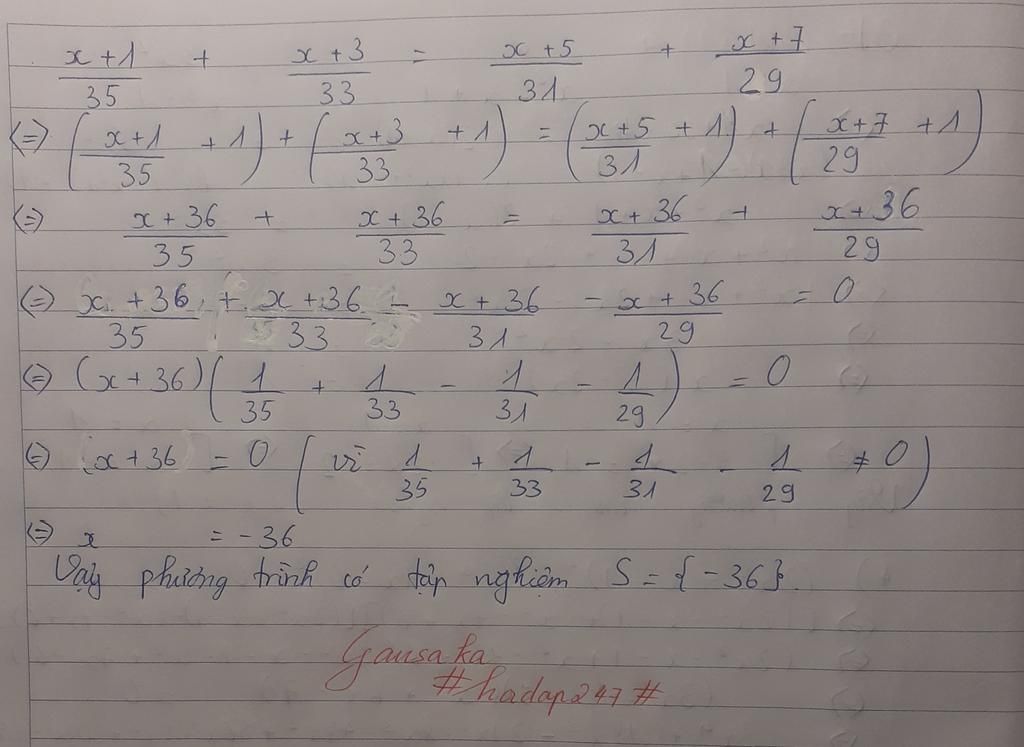 x+1/35 + x+3/33 = x+5/31 + x+7/29
<=> (x+1/35 + 1) + (x+3/33 + 1) = (x+5/31 + 1) + (x+7/29 + 1)
<=> x+36/35 + x+36/33 = x+36/31 + x+36/29
<=> x+36/35 + x+36/33 - x+36/31 - x+36/29 = 0
<=> (x+36)(1/35 + 1/33 - 1/31 - 1/29) = 0
<=> x+36 = 0 (vì 1/35 + 1/33 - 1/31 - 1/29 ≠ 0)
<=> x = -36
Vậy phương trình có tập nghiệm S = {-36}.
Gausaka
#hadap247#